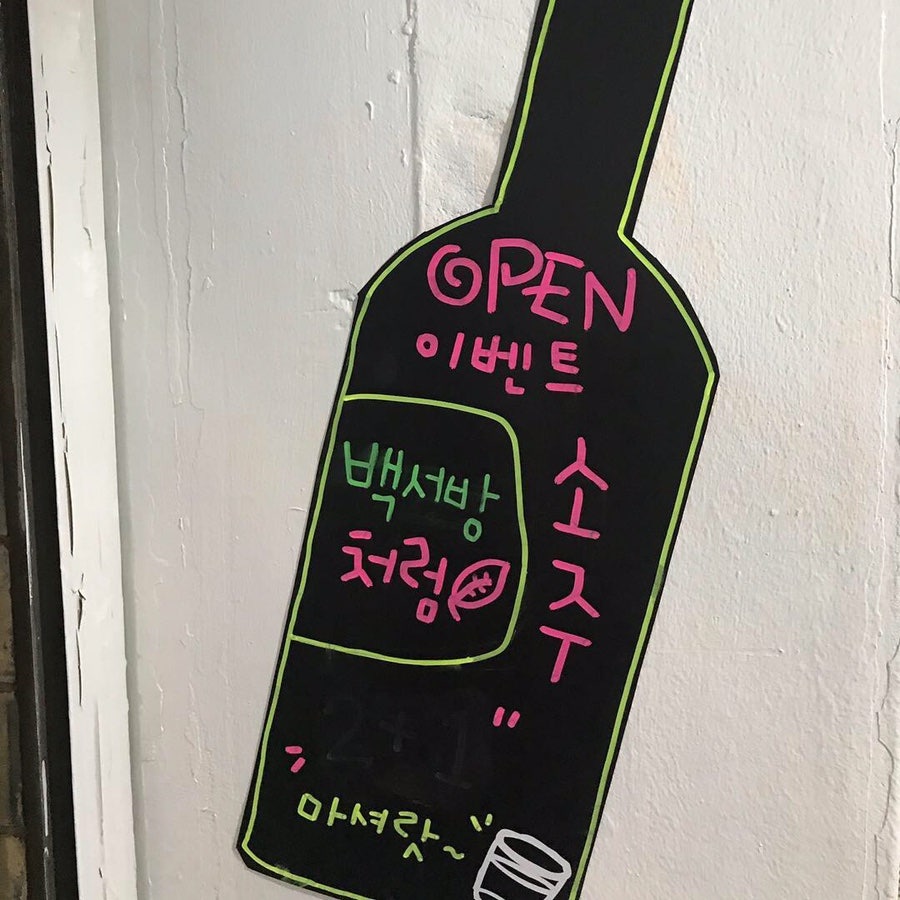 OPEN
이벤트
백서방
처럼
소주
"2+1"
마셔랏~